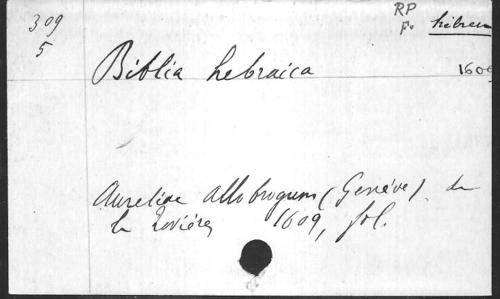 309
5
RP
p. hébreu
Biblia hebraica
1609
Aureliae Allobrogum (Genève), de
la Rovière, 1609, fol.